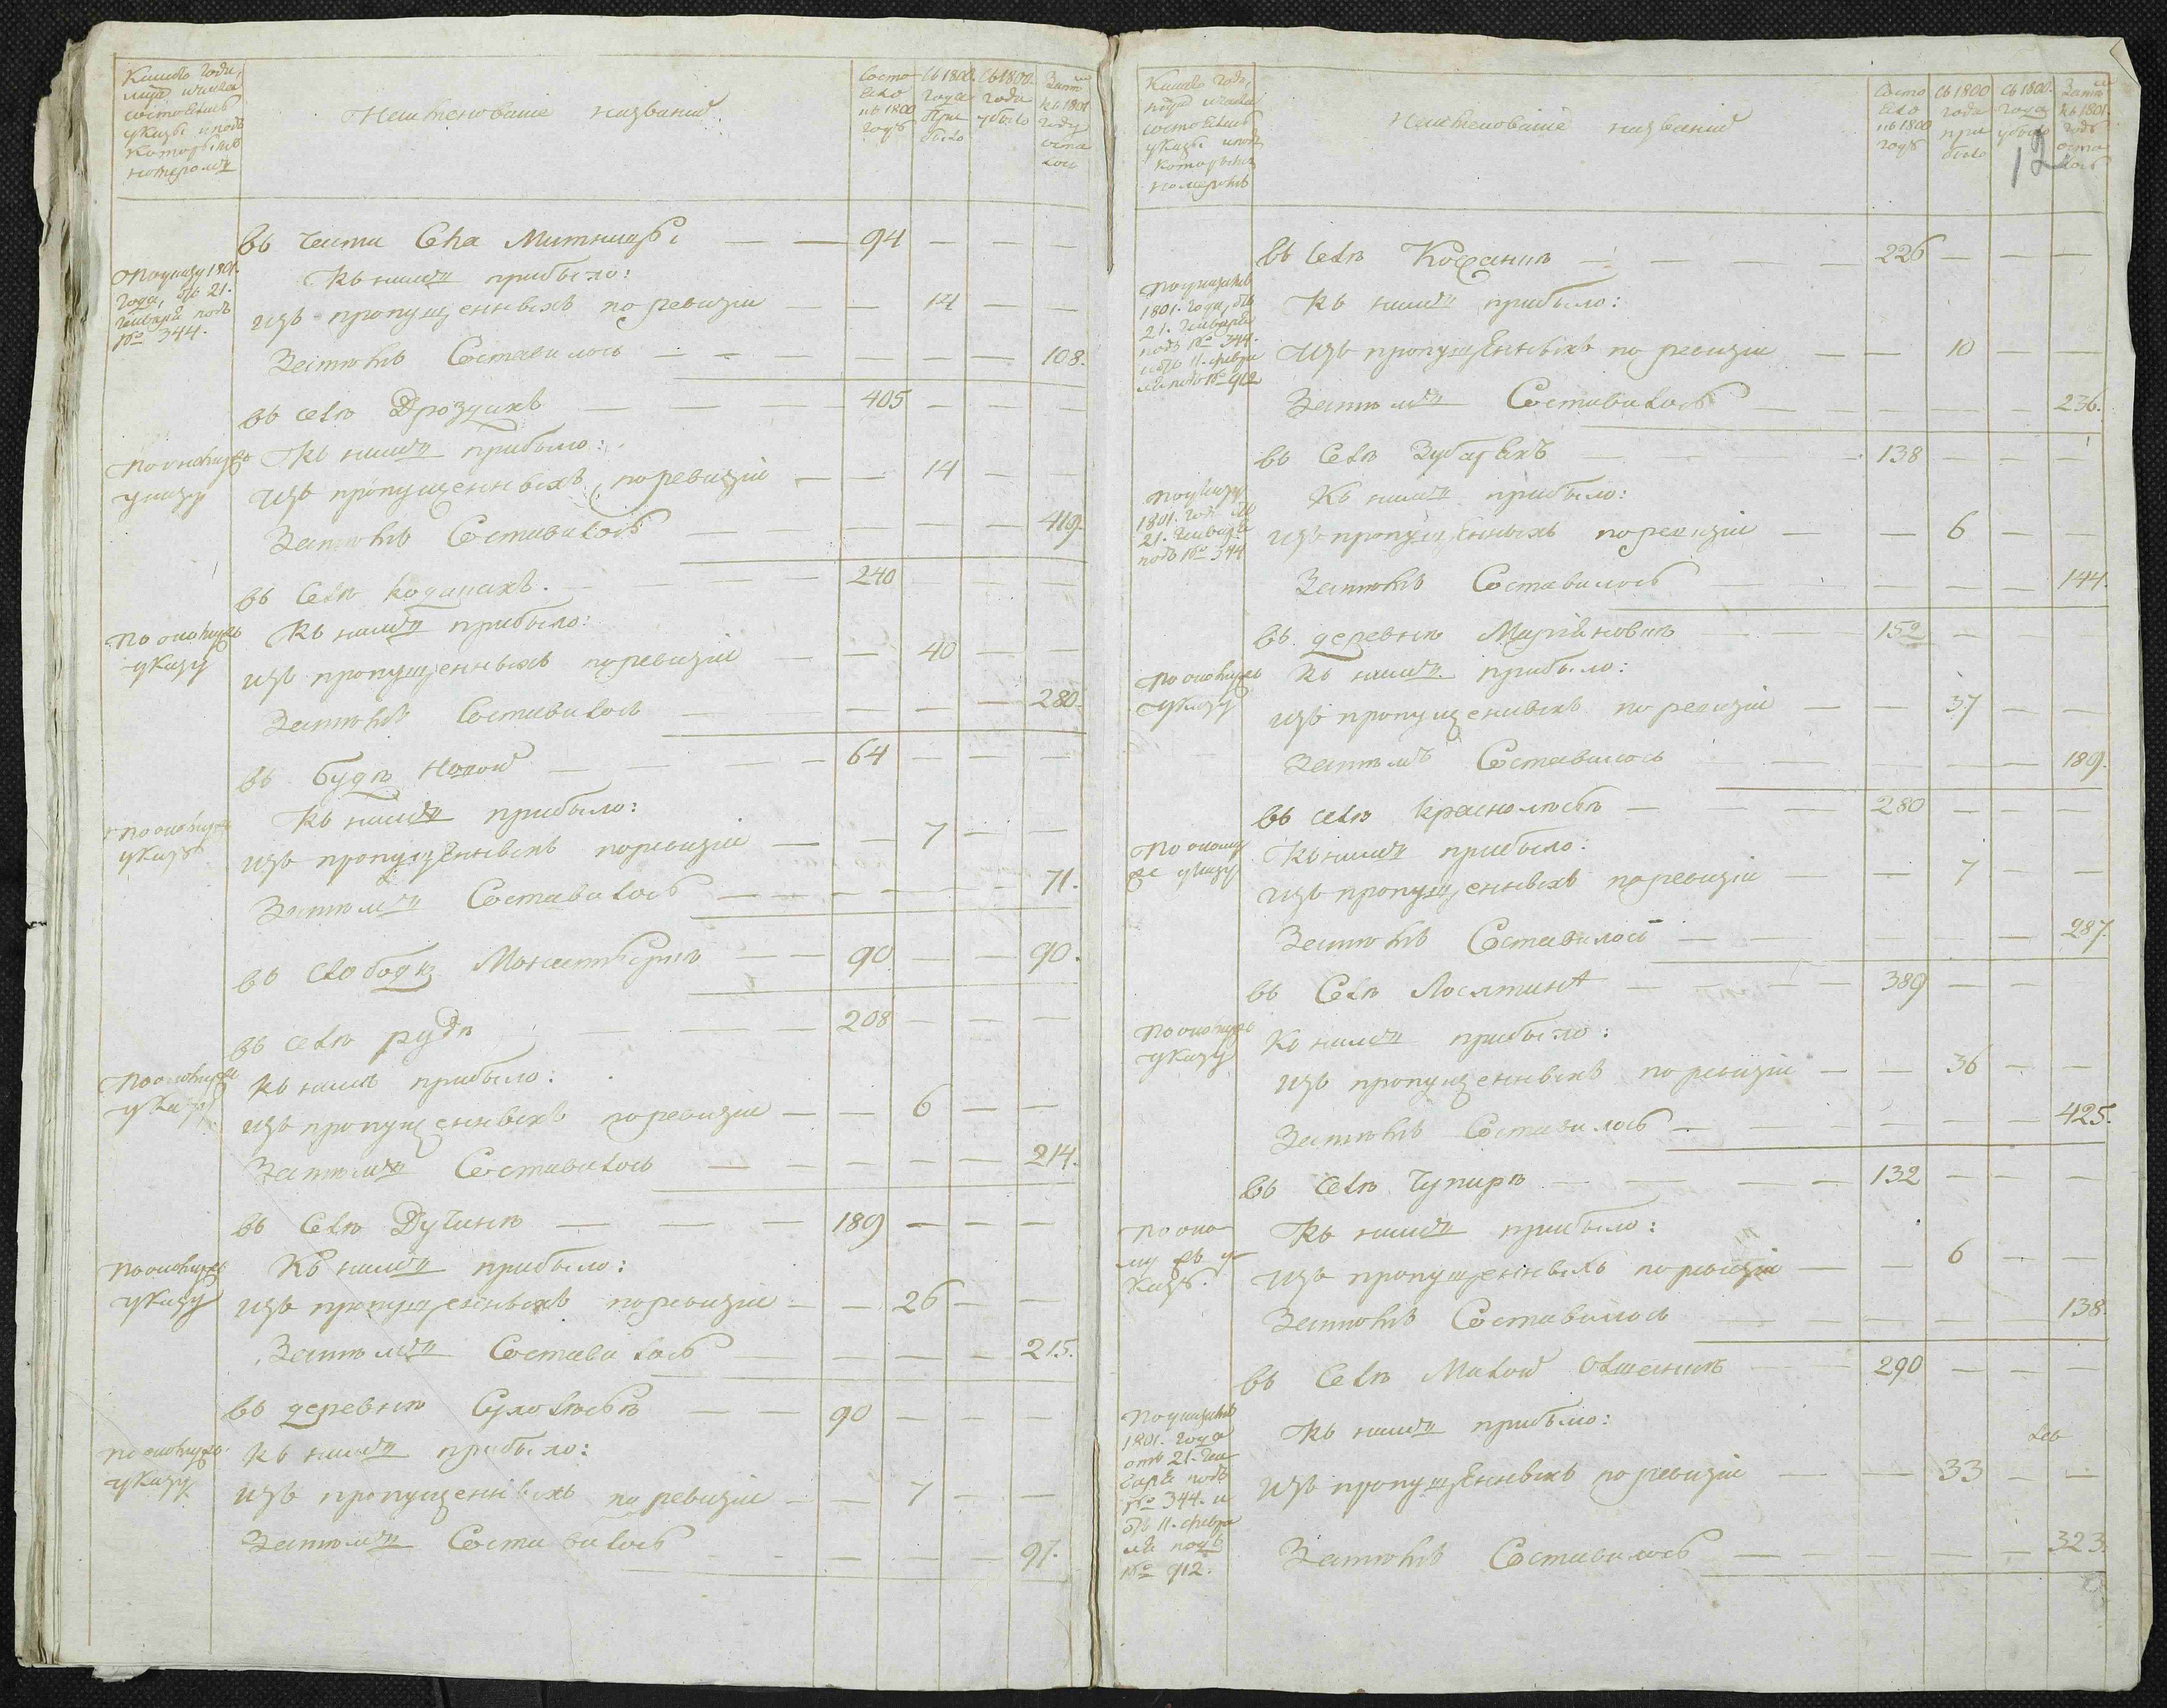 Коего года,
наименованiе названiй
состо
яло
къ 1800
году
съ 1800
года
при
было
съ 1800
года
убыло
затѣмъ
къ 1801
году
оста
лось
въ части села Митницы — — 94 — — —
По указу 1801.
года, отъ 21.
генваря подъ
№ 344.
Къ нимъ прибыло:
изъ пропущенныхъ по ревизiи — — 14 — —
Затѣмъ Составилось — — — — — 108.
въ селѣ Дроздахъ — — — 405 — — —
По оному жъ
указу
Къ нимъ прибыло:
изъ пропущенныхъ по ревизiи — — 14 — —
Затѣмъ Составилось — — — — 419.
въ селѣ Коданахъ. — — — 240 — — —
По оному жъ
указу
Къ нимъ прибыло:
изъ пропущенныхъ по ревизiи — — 40 — —
Затѣмъ Составилось — — — — 280.
въ Будѣ новой — — — 64 — — —
По оному жъ
указу
Къ нимъ прибыло:
изъ пропущенныхъ по ревизiи — — 7 — —
Затѣмъ Составилось — — — — — 71.
въ слободѣ — — 90 — — 90.
въ селѣ рудѣ — — — 208 — — —
По оному жъ
указу
Къ нимъ прибыло:
изъ пропущенныхъ по ревизiи — — 6 — —
Затѣмъ Составилось — — — — — 214.
въ селѣ Дулинѣ — — — 189 — — —
По оному жъ
указу
Къ нимъ прибыло:
изъ пропущенныхъ по ревизiи — — 26 — —
Затѣмъ Составилось — — — — 215.
въ деревнѣ Сухолѣсѣ — — 90 — — —
По оному жъ
указу
Къ нимъ прибыло:
изъ пропущенныхъ по ревизiи — — 7 — —
Затѣмъ Составилось — — — — 97.
наименованiе названiй
состо
яло
къ 1800
году
съ 1800
года
при
было
съ 1800.
года
убыло
затѣмъ
къ 1801.
году
оста
лось
12
въ селѣ Кошанкѣ — — — — 226 — — —
По указамъ
1801. года, отъ
21. генваря
подъ № 344.
и отъ 11. февра
ля подъ № 912
Къ нимъ прибыло:
изъ пропущенныхъ по ревизiи — — 10 — —
Затѣмъ Составилось — — — — 236.
въ селѣ Зубарѣхъ — — — 138 — — —
По указу
1801. года отъ
21. генваря
подъ № 344
Къ нимъ прибыло:
изъ пропущенныхъ по ревизiи — — 6 — —
Затѣмъ Составилось — — — — 144.
въ деревнѣ Марiяновкѣ — — 152 —
По оному жъ
указу
Къ нимъ прибыло:
изъ пропущенныхъ по ревизiи — — 37 — —
Затѣмъ Составилось — — — — 189.
въ селѣ краснолѣсѣ — — — 280 — — —
По оному
же указу
Къ нимъ прибыло:
изъ пропущенныхъ по ревизiи — — 7 — —
Затѣмъ Составилось — — — — 287.
въ селѣ Лосятинѣ — — — — 389 — —
По оному жъ
указу
Къ нимъ прибыло:
изъ пропущенныхъ по ревизiи — — 36 — —
Затѣмъ Составилось — — — — — 425.
въ селѣ Чупирѣ — — — — 132 — — —
По оно
му жъ у
казу.
Къ нимъ прибыло:
изъ пропущенныхъ по ревизiи — — 6 — —
Затѣмъ Составилось — — — — — 138.
въ селѣ Малой Олшанкѣ — — 290 — — —
По указамъ
1801. года
отъ 21. ген
варя подъ
№ 344. и
отъ 11. февра
ля подъ
№ 912.
Къ нимъ прибыло:
изъ пропущенныхъ по ревизiи — — 33 — —
Затѣмъ Составилось — — — — — 323.